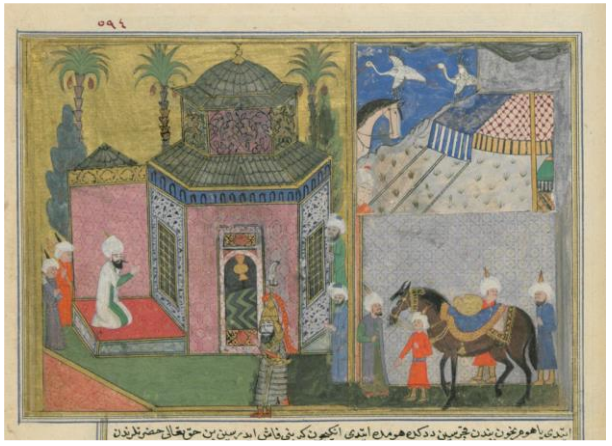 ٥٩٤
ایتدی یا هوم نچون بندن قچرسین ددکده هومده ایتدی انکچون که بنی فاش ایدرسین بن حق تعالی حضرتلرندن